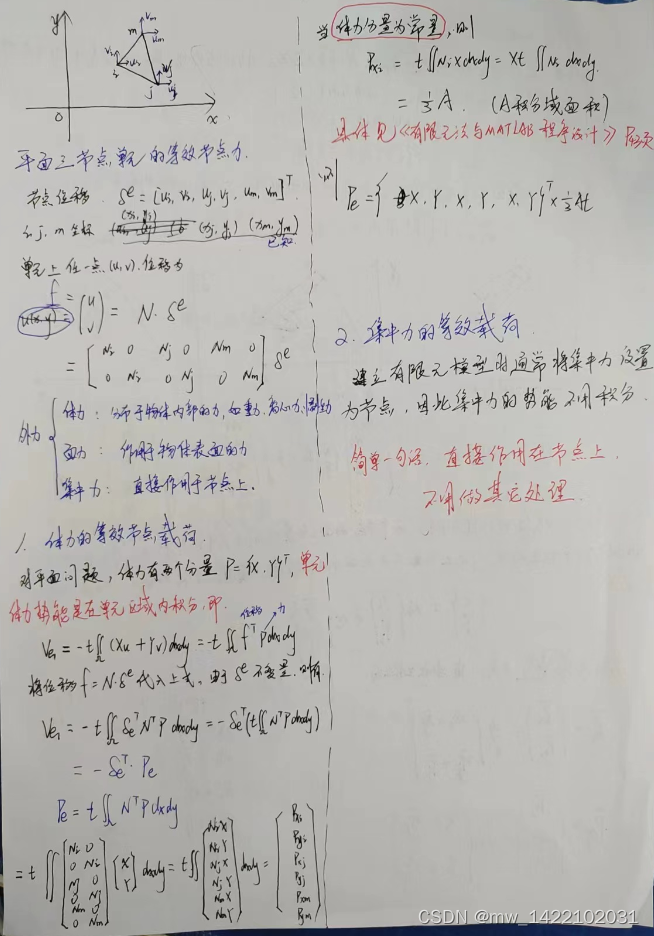 y
x
0
vm
um
m
vi
ui
i
vj
uj
j
平面三节点单元的等效节点力.
节点位移. δe = [ui, vi, uj, vj, um, vm]T
i, j, m 坐标 (xi, yi) (xj, yj) (xm, ym)
已知
单元上任一点(u,v).位移为
f = (u v) = N·δe
= [Ni 0 Nj 0 Nm 0
0 Ni 0 Nj 0 Nm] δe
外力
体力: 分布于物体内部的力,如重力.离心力.
面力: 作用于物体表面的力
集中力: 直接作用于节点上.
1. 体力的等效节点载荷.
对平面问题,体力有两个分量 P={X.Y}T, 单元
体力势能是在单元区域内积分,即.
位移 力
Ve1 = -t∬(Xu+Yv)dxdy = -t∬ fT P dxdy
将位移 f=N·δe 代入上式,由于 δe 不变量.
Ve1 = -t∬ δeT NT P dxdy = -δeT(t∬ NT P dxdy)
= -δeT· Pe
Pe = t∬ NT P dxdy
= t∬ [Ni 0
0 Ni
Nj 0
0 Nj
Nm 0
0 Nm] {X Y} dxdy = t∬ {NiX NiY NjX NjY NmX NmY} dxdy = {Pxi Pyi Pxj Pyj Pxm Pym}
当体力分量为常量,则
Pxi = t∬NiXdxdy = Xt∬Ni dxdy.
= 1/3 A. (A积分域面积)
具体见《有限元法与MATLAB程序设计》
则 Pe = { X, Y, X, Y, X, Y}T × 1/3 At
2. 集中力的等效载荷.
建立有限元模型时通常将集中力设置
为节点,因此集中力的势能不用积分.
简单一句话,直接作用在节点上.
不用做其它处理.
CSDN @mw_1422102031